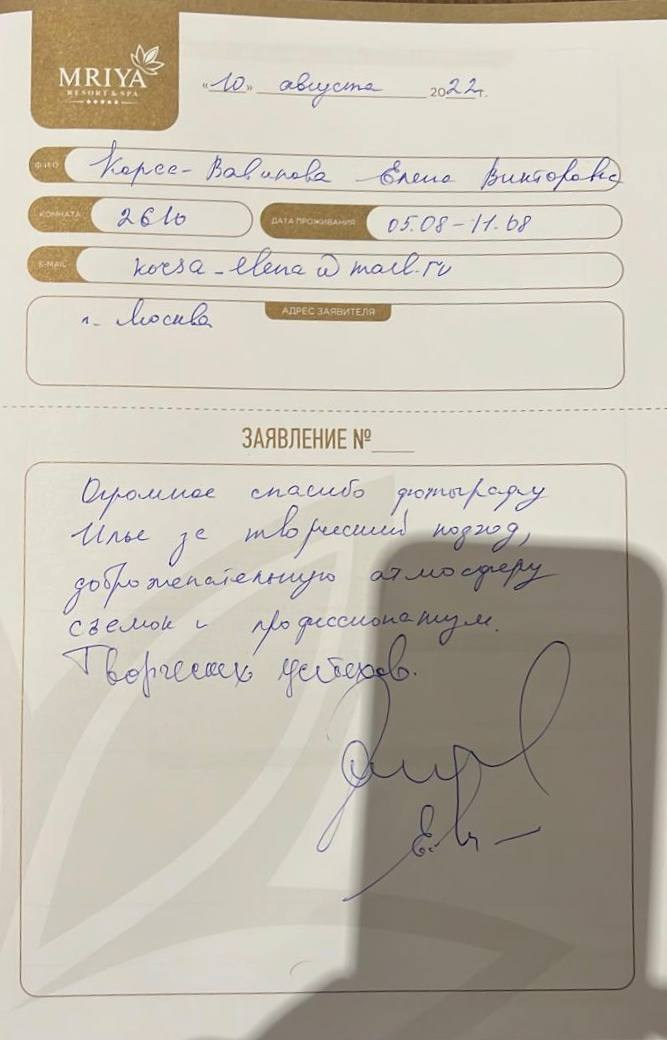 MRIYA
RESORT & SPA
«10» августа 2022г.
Ф.И.О. Корса-Вавилова Елена Викторовна
КОМНАТА 2616 ДАТА ПРОЖИВАНИЯ 05.08-11.08
E-MAIL korsa_elena@mail.ru
АДРЕС ЗАЯВИТЕЛЯ
г. Москва
ЗАЯВЛЕНИЕ №
Огромное спасибо фотографу
Илье за творческий подход,
доброжелательную атмосферу
съемок и профессионализм.
Творческих успехов.